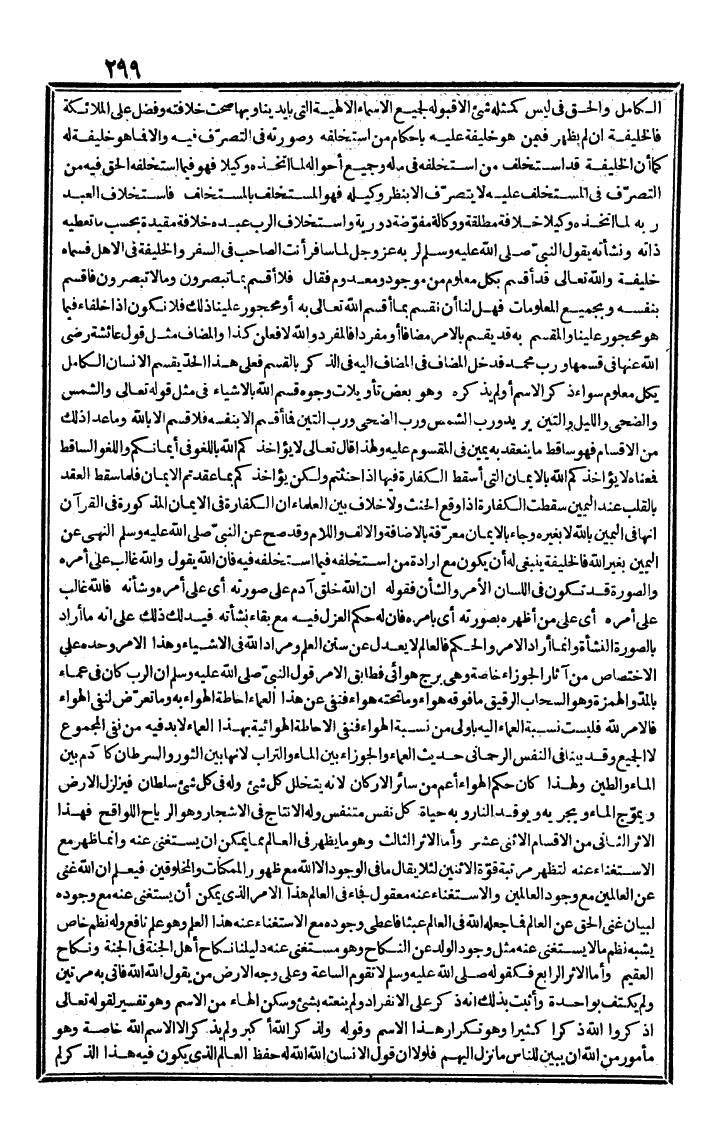 ٢٩٩
الكامل والحق في ليس كمثله شئ الا قبوله لجميع الاسماء الالهية التي بايدينا وبها صحت خلافته وفضل على الملائكة
فالخليفة ان لم يظهر فمن هو خليفة عليه باحكام من استخلفه وصورته في التصرف فيه والا فما هو خليفة له
كما أن الخليفة قد استخلف من استخلفه في ماله وجميع أحواله لما اتخذه وكيلا فهو فيما استخلفه الحق فيه من
التصرف في المستخلف عليه لا يتصرف الا بنظر وكيله فهو المستخلف بالمستخلف فاستخلاف العبد
ربه لما اتخذه وكيلا خلافة مطلقة ووكالة مفوّضة دورية واستخلاف الرب عبده خلافة مقيدة بحسب ما تعطيه
ذاته ونشأته يقول النبيّ صلى الله عليه وسلم لربه عز وجل لما سافر أنت الصاحب في السفر والخليفة في الاهل فسماه
خليفة والله تعالى قد أقسم بكل معلوم من موجود ومعدوم فقال فلا أقسم بما تبصرون وما لا تبصرون فاقسم
بنفسه وبجميع المعلومات فهل لنا أن نقسم بما أقسم الله تعالى به أو محجور علينا ذلك فلا نكون اذا خلفاء فيما
هو محجور علينا والمقسم به قد يقسم بالامر مضافا أو مفردا فالمفرد والله لافعلن كذا والمضاف مثل قول عائشة رضى
الله عنها في قسمها ورب محمد فدخل المضاف في المضاف اليه في الذكر بالقسم فعلى هذا الحدّ يقسم الانسان الكامل
بكل معلوم سواء ذكر الاسم أو لم يذكره وهو بعض تأويلات وجوه قسم الله بالاشياء في مثل قوله تعالى والشمس
والضحى والليل والتين يريد ورب الشمس ورب الضحى ورب التين فما أقسم الا بنفسه فلا قسم الا بالله وما عدا ذلك
من الاقسام فهو ساقط ما ينعقد به يمين في المقسوم عليه ولهذا قال تعالى لا يؤاخذكم الله باللغو في أيمانكم واللغو الساقط
فمعناه لا يؤاخذكم الله بالايمان التي أسقط الكفارة فيها اذا حنثتم ولكن يؤاخذكم بما عقدتم الايمان فلما سقط العقد
بالقلب عند اليمين سقطت الكفارة اذا وقع الحنث ولا خلاف بين العلماء ان الكفارة في الايمان المذكورة في القرآن
انها في اليمين بالله لا بغيره وجاء بالايمان معرّفة بالاضافة والالف واللام وقد صح عن النبيّ صلى الله عليه وسلم النهى عن
اليمين بغير الله فالخليفة ينبغي له أن يكون مع ارادة من استخلفه فيما استخلفه فيه فان الله يقول والله غالب على أمره
والصورة قد تكون في اللسان الأمر والشأن فقوله ان الله خلق آدم على صورته أى على أمره وشأنه فالله غالب
على أمره أى على من أظهره بصورته أى بامره فان له حكم العزل فيه مع بقاء نشأته فيدلك ذلك على انه ما أراد
بالصورة النشأة وانما أراد الامر والحكم فالعالم لا يعدل عن سنن العلم ومراد الله في الاشياء وهذا الامر وحده على
الاختصاص من آثار الجوزاء خاصة وهي برج هوائي فطابق الامر قول النبيّ صلى الله عليه وسلم ان الرب كان في عماء
بالمدّ والهمزة وهو السحاب الرقيق ما فوقه هواء وما تحته هواء فنفى عن هذا العماء احاطة الهواء به وما تعرّض لنفى الهواء
فالامر لله فليست نسبة العماء اليه باولى من نسبة الهواء فنفى الاحاطة الهوائية بهذا العماء لابد فيه من نفى المجموع
لا الجميع وقد بينا في النفس الرحمانى حديث العماء والجوزاء بين الماء والتراب لانها بين الثور والسرطان كآدم بين
الماء والطين ولهذا كان حكم الهواء أعم من سائر الاركان لانه يتخلل كل شئ وله في كل شئ سلطان فيزلزل الارض
ويموّج الماء ويجريه ويوقد النار وبه حياة كل نفس متنفس وله الانتاج في الاشجار وهو الرياح اللواقح فهذا
الاثر الثانى من الاقسام الاثنى عشر وأما الاثر الثالث وهو ما يظهر في العالم مما يمكن ان يستغنى عنه وانما ظهر مع
الاستغناء عنه لتظهر مرتبة قوّة الاثنين لئلا يقال ما في الوجود الا الله مع ظهور الممكنات والمخلوقين فيعلم ان الله غنى
عن العالمين مع وجود العالمين والاستغناء عنه معقول فجاء في العالم هذا الامر الذي يمكن أن يستغنى عنه مع وجوده
لبيان غنى الحق عن العالم فما جعله الله في العالم عبثا فاعطى وجوده مع الاستغناء عنه هذا العلم وهو علم نافع وله نظم خاص
يشبه نظم ما لا يستغنى عنه مثل وجود الولد عن النكاح وهو مستغنى عنه دليلنا نكاح أهل الجنة في الجنة ونكاح
العقيم وأما الاثر الرابع فكقوله صلى الله عليه وسلم لا تقوم الساعة وعلى وجه الارض من يقول الله الله فاتى به مرتين
ولم يكتف بواحدة وأثبت بذلك انه ذكر على الانفراد ولم ينعته بشئ وسكن الهاء من الاسم وهو تفسير لقوله تعالى
اذكروا الله ذكرا كثيرا وهو تكرار هذا الاسم وقوله ولذكر الله أكبر ولم يذكر الا الاسم الله خاصة وهو
مأمور من الله ان يبين للناس ما نزل اليهم فلولا ان قول الانسان الله الله له حفظ العالم الذي يكون فيه هذا الذكر لم